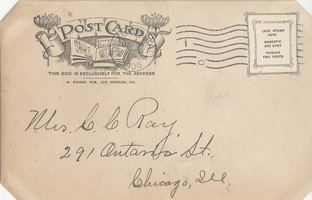 POST CARD
THIS SIDE IS EXCLUSIVELY FOR THE ADDRESS
M. RIEDER, PUB., LOS ANGELES, CAL.
PLACE STAMP
HERE
DOMESTIC
ONE CENT
FOREIGN
TWO CENTS
Mrs. C. C. Ray
291 Ontario St.
Chicago, Ill.